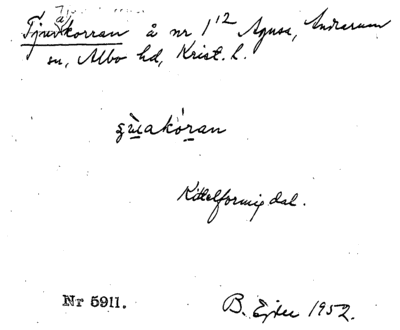 Tjuvakorran å nr 1¹² Agusa, Andrarum
sn, Albo hd, Krist. l.
Kittelformig dal.
Nr 5911.
B. Ejder 1952.